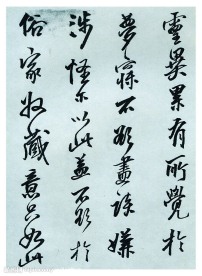 靈異累有所覺於
夢寐不欲盡談嫌
涉怪亦以此益不欲於
俗家收藏意只如此